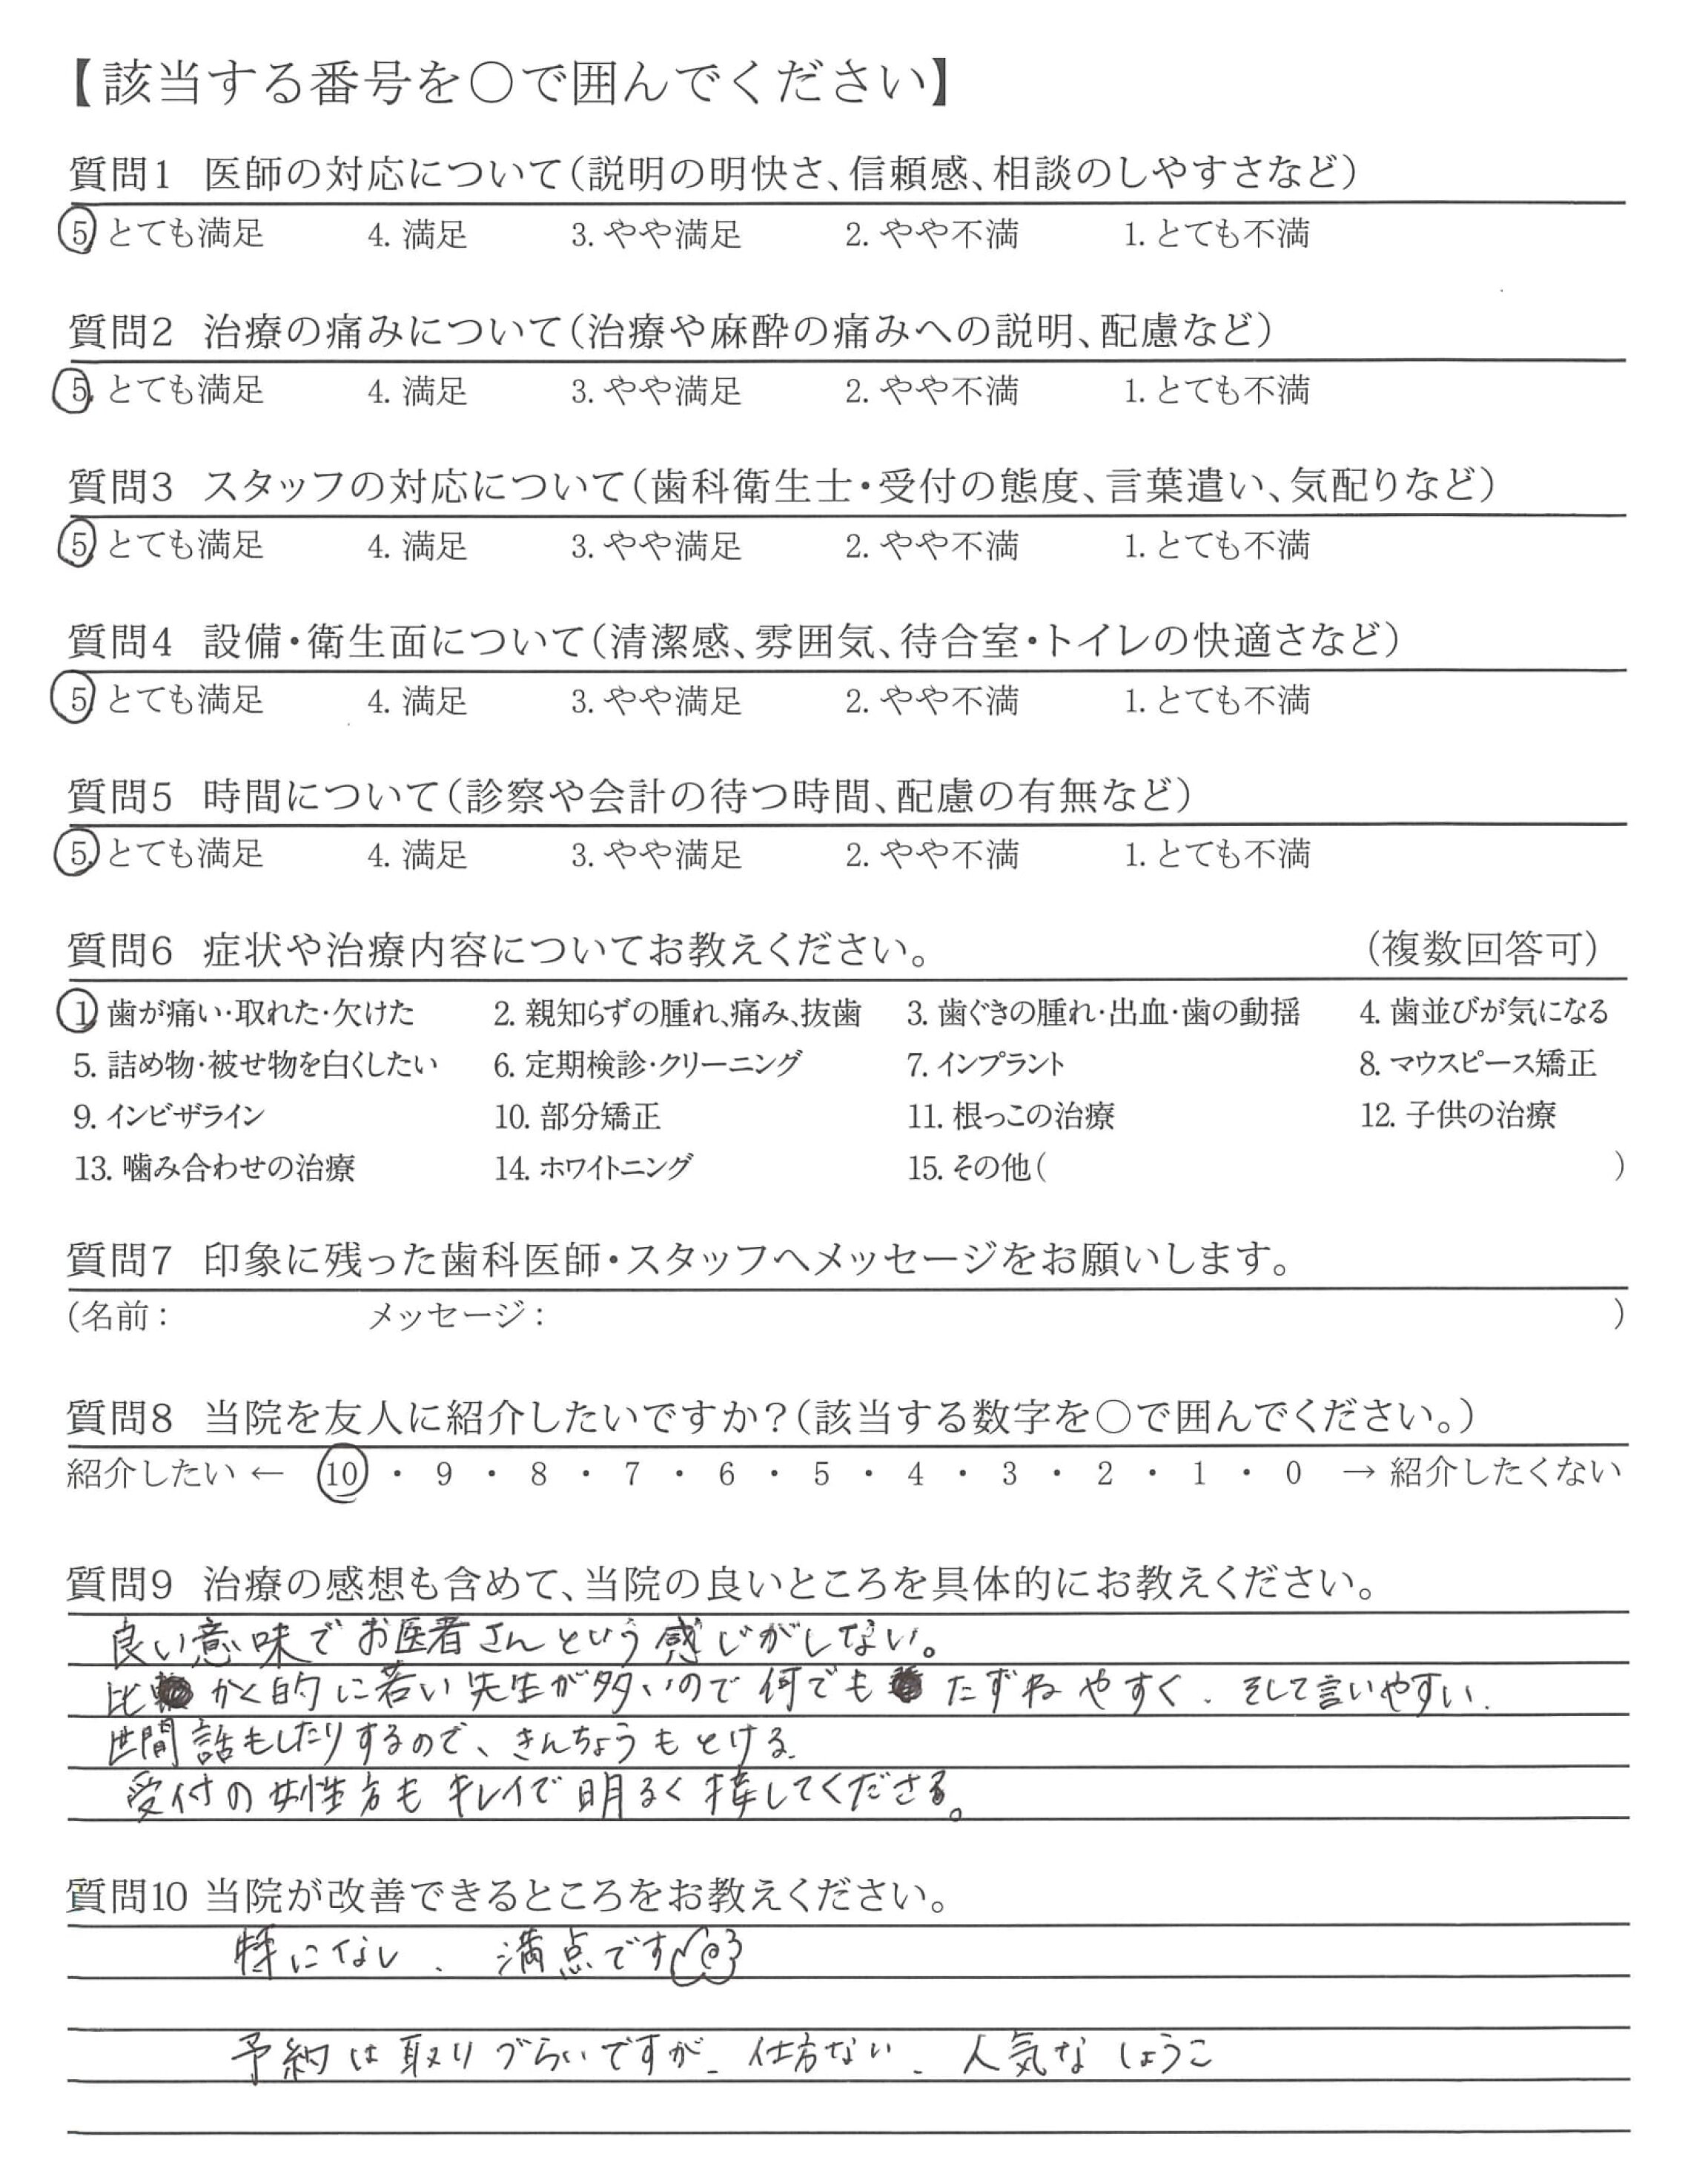 【該当する番号を○で囲んでください】
質問1 医師の対応について(説明の明快さ、信頼感、相談のしやすさなど)
5. とても満足 4. 満足 3. やや満足 2. やや不満 1. とても不満
質問2 治療の痛みについて(治療や麻酔の痛みへの説明、配慮など)
5. とても満足 4. 満足 3. やや満足 2. やや不満 1. とても不満
質問3 スタッフの対応について(歯科衛生士・受付の態度、言葉遣い、気配りなど)
5. とても満足 4. 満足 3. やや満足 2. やや不満 1. とても不満
質問4 設備・衛生面について(清潔感、雰囲気、待合室・トイレの快適さなど)
5. とても満足 4. 満足 3. やや満足 2. やや不満 1. とても不満
質問5 時間について(診察や会計の待つ時間、配慮の有無など)
5. とても満足 4. 満足 3. やや満足 2. やや不満 1. とても不満
質問6 症状や治療内容についてお教えください。 (複数回答可)
1. 歯が痛い・取れた・欠けた 2. 親知らずの腫れ、痛み、抜歯 3. 歯ぐきの腫れ・出血・歯の動揺 4. 歯並びが気になる
5. 詰め物・被せ物を白くしたい 6. 定期検診・クリーニング 7. インプラント 8. マウスピース矯正
9. インビザライン 10. 部分矯正 11. 根っこの治療 12. 子供の治療
13. 噛み合わせの治療 14. ホワイトニング 15. その他( )
質問7 印象に残った歯科医師・スタッフへメッセージをお願いします。
(名前: メッセージ: )
質問8 当院を友人に紹介したいですか?(該当する数字を○で囲んでください。)
紹介したい ← 10 ・ 9 ・ 8 ・ 7 ・ 6 ・ 5 ・ 4 ・ 3 ・ 2 ・ 1 ・ 0 → 紹介したくない
質問9 治療の感想も含めて、当院の良いところを具体的にお教えください。
良い意味でお医者さんという感じがしない。
比かく的に若い先生が多いので何でもたずねやすく、そして言いやすい。
世間話もしたりするので、きんちょうもとける。
受付の女性方もキレイで明るく接してくださる。
質問10 当院が改善できるところをお教えください。
特になし、満点です
予約は取りづらいですが、仕方ない、人気なしょうこ